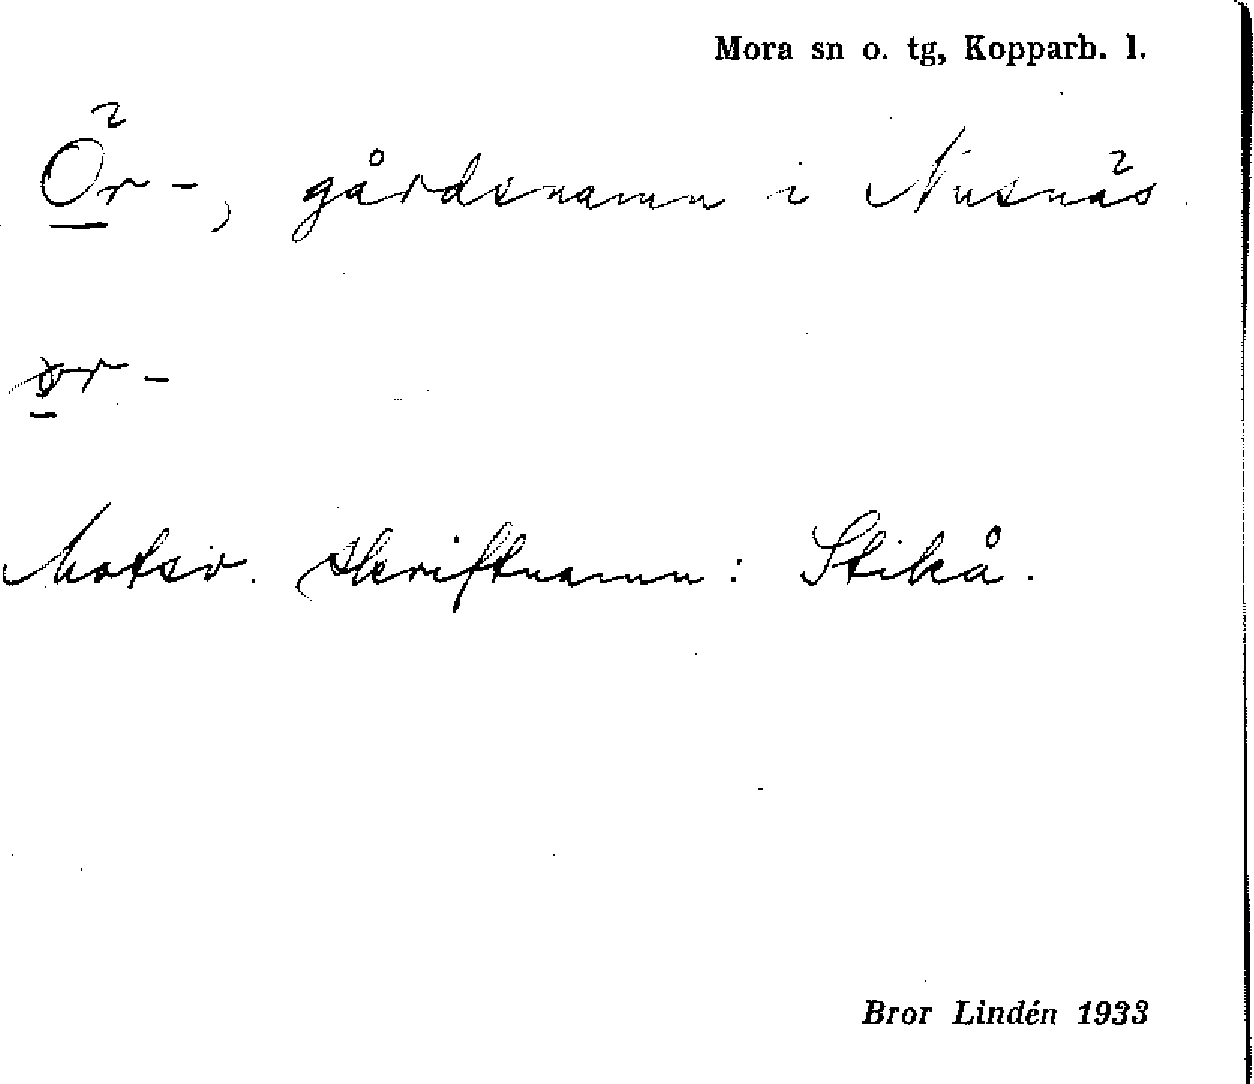 Mora sn o. tg, Kopparb. l.
Ör-, gårdsnamn i Nusnäs
ɤr-
Motsv. skriftnamn: Stikå.
Bror Lindén 1933